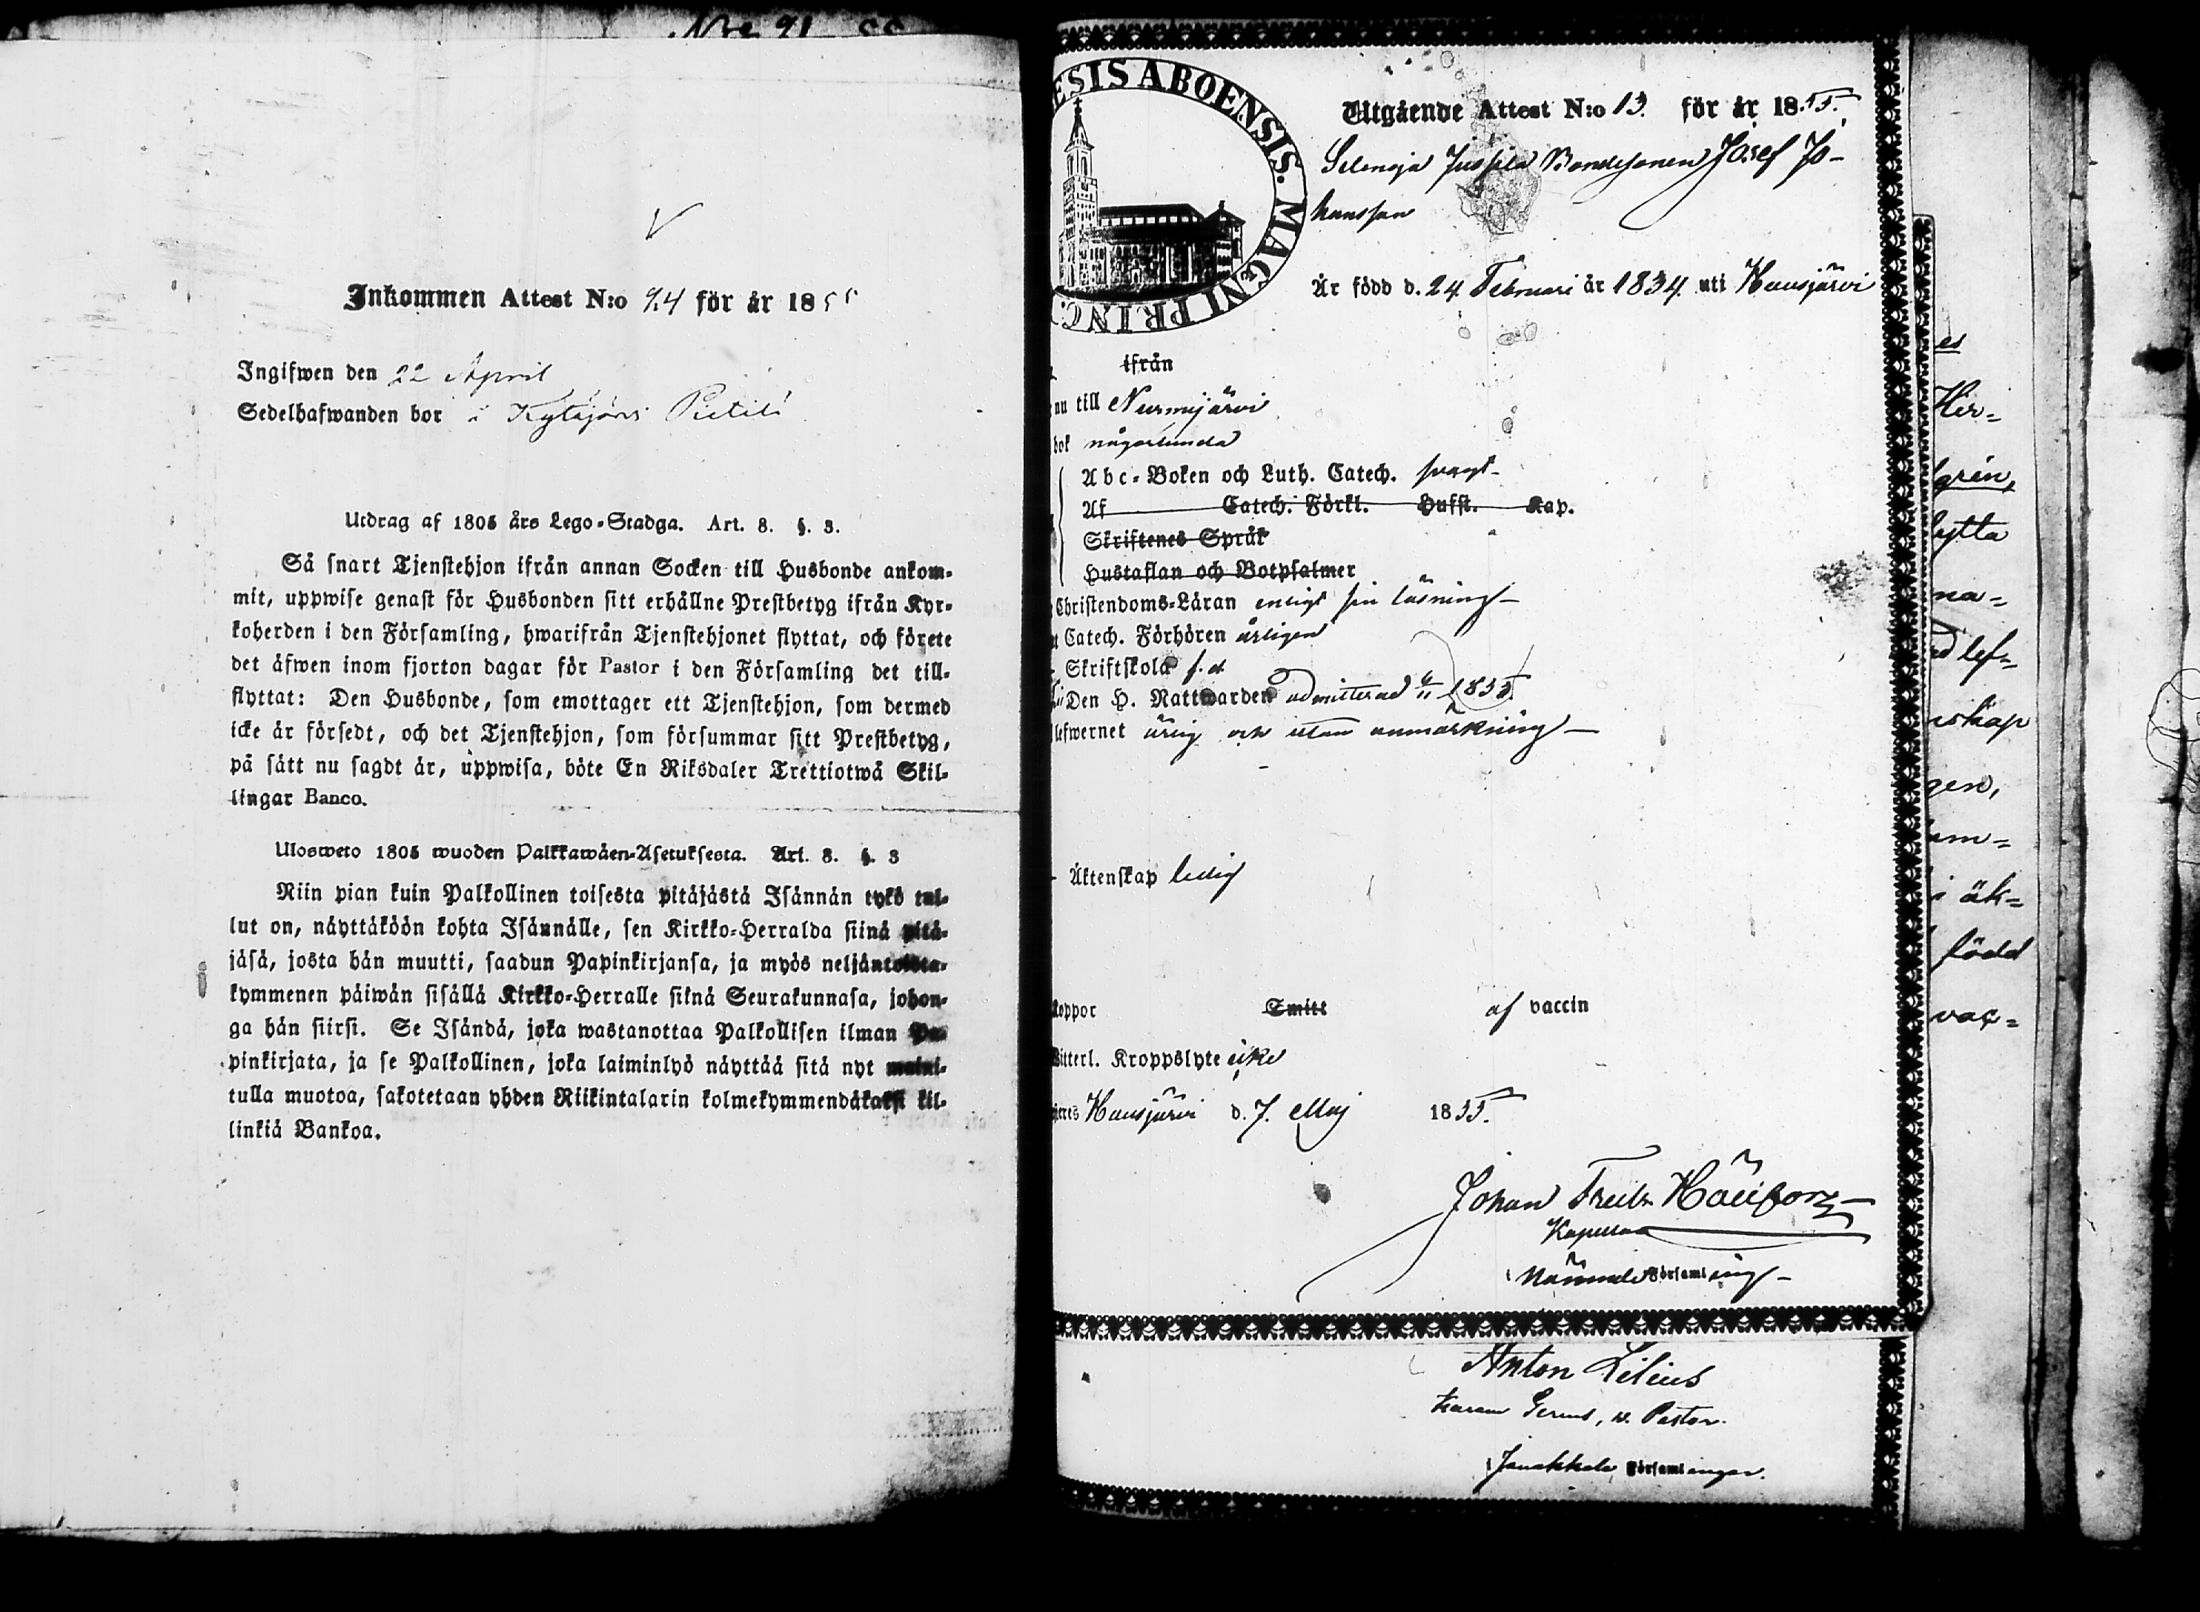 Inkommen Attest N:o 94 för år 1855
Ingifwen den 22 April
Sedelhafwanden bor i Kytäjärvi Pietilä
Utdrag af 1805 års Lego-Stadga. Art. 8. §. 3.
Så snart Tjenstehjon ifrån annan Socken till Husbonde ankom-
mit, uppwise genast för Husbonden sitt erhållne Prestbetyg ifrån Kyr-
koherden i den Församling, hwarifrån Tjenstehjonet flyttat, och förete
det äfwen inom fjorton dagar för Pastor i den Församling det till-
flyttat: Den Husbonde, som emottager ett Tjenstehjon, som dermed
icke är försedt, och det Tjenstehjon, som försummar sitt Prestbetyg,
på sätt nu sagdt är, uppwisa, böte En Riksdaler Trettiotwå Skil-
lingar Banco.
Ulosweto 1805 wuoden Palkkawäen-Asetuksesta. Art. 8. §. 3
Niin pian kuin Palkollinen toisesta pitäjästä Isännän tykö tul-
lut on, näyttäköön kohta Isännälle, sen Kirkko-Herralda siinä pitä-
jäsä, josta hän muutti, saadun Papinkirjansa, ja myös neljäntoista-
kymmenen päiwän sisällä Kirkko-Herralle siinä Seurakunnasa, johon-
ga hän siirsi. Se Isändä, joka wastanottaa Palkollisen ilman Pa-
pinkirjata, ja se Palkollinen, joka laiminlyö näyttää sitä nyt maini-
tulla muotoa, sakotetaan yhden Riikintalarin kolmekymmendäkaksi kil-
linkiä Bankoa.
ESIS ABOENSIS. MAGNI PRINC.
Utgående Attest N:o 13. för år 1855.
Selenoja Jussila Bondesonen Josef Jo-
hansson
Är född d. 24 Februari år 1834. uti Hausjärvi
ifrån
nu till Nurmijärvi
bok någorlunda
Abc-Boken och Luth. Catech. svagt
Af Catech. Förkl. Hufst. Kap.
Skriftenes Språk
Hustaflan och Botpsalmer
Christendoms-Läran enligt sin läsning
Catech. Förhören årligen
Skriftskola f. d.
Den H. Nattwarden admitterad 1853.
lefwernet ärlig och utan anmärkning
Äktenskap ledig
koppor Smitt af vaccin
Witterl. Kroppslyte icke
Hausjärvi d. 7. Maj 1855.
Johan
Kapellan
i Nämnde Församling
Anton Lilius
v. Pastor.
i Janakkala Församlingar.
es
Her-
gren,
lytta
na-
ed lef-
nskap
gen,
am-
i äk-
född
vac-